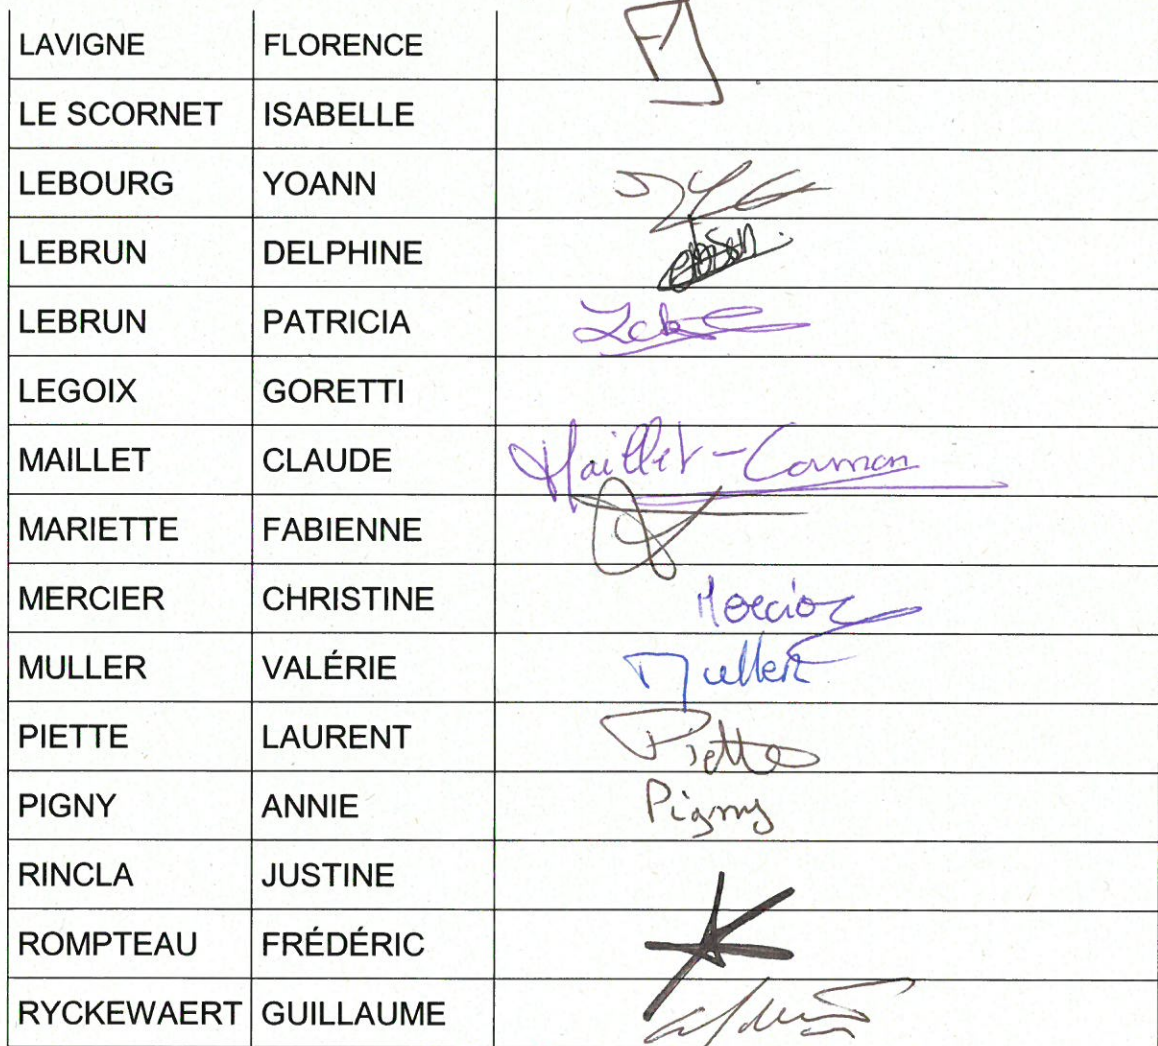 LAVIGNE FLORENCE
LE SCORNET ISABELLE
LEBOURG YOANN
LEBRUN DELPHINE
LEBRUN PATRICIA
LEGOIX GORETTI
MAILLET CLAUDE Maillet-
MARIETTE FABIENNE
MERCIER CHRISTINE Mercier
MULLER VALÉRIE Muller
PIETTE LAURENT Piette
PIGNY ANNIE Pigny
RINCLA JUSTINE
ROMPTEAU FRÉDÉRIC
RYCKEWAERT GUILLAUME